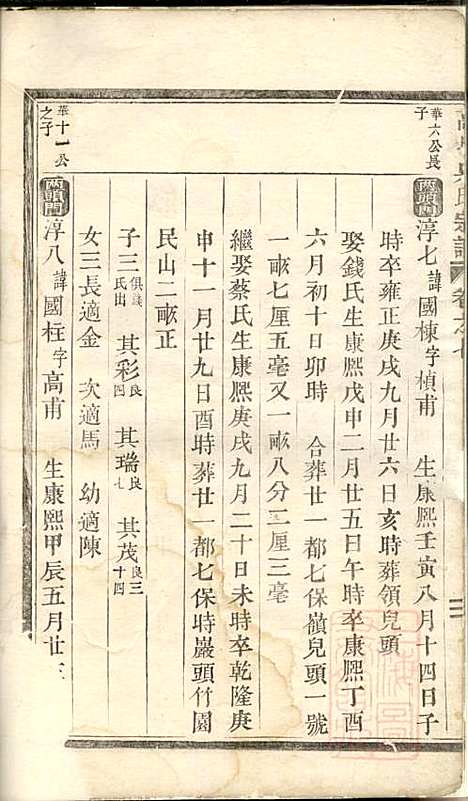 氏宗譜 卷之七
華六公長子
兩頭門 淳七 諱國棟字楨甫 生康熙壬寅八月十四日子
時卒雍正庚戌九月廿六日亥時葬領兒頭
娶錢氏生康熙戊申二月廿五日午時卒康熙丁酉
六月初十日卯時 合葬廿一都七保嶺兒頭一號
一畝七厘五毫又一畝八分二厘三毫
繼娶蔡氏生康熙庚戌九月二十日未時卒乾隆庚
申十一月廿九日酉時葬廿一都七保時嚴頭竹園
民山二畝正
子三俱錢氏出 其彩良四 其瑞良七 其茂良三十四
女三長適金 次適馬 幼適陳
華十一公之子
兩頭門 淳八 諱國柱字高甫 生康熙甲辰五月廿